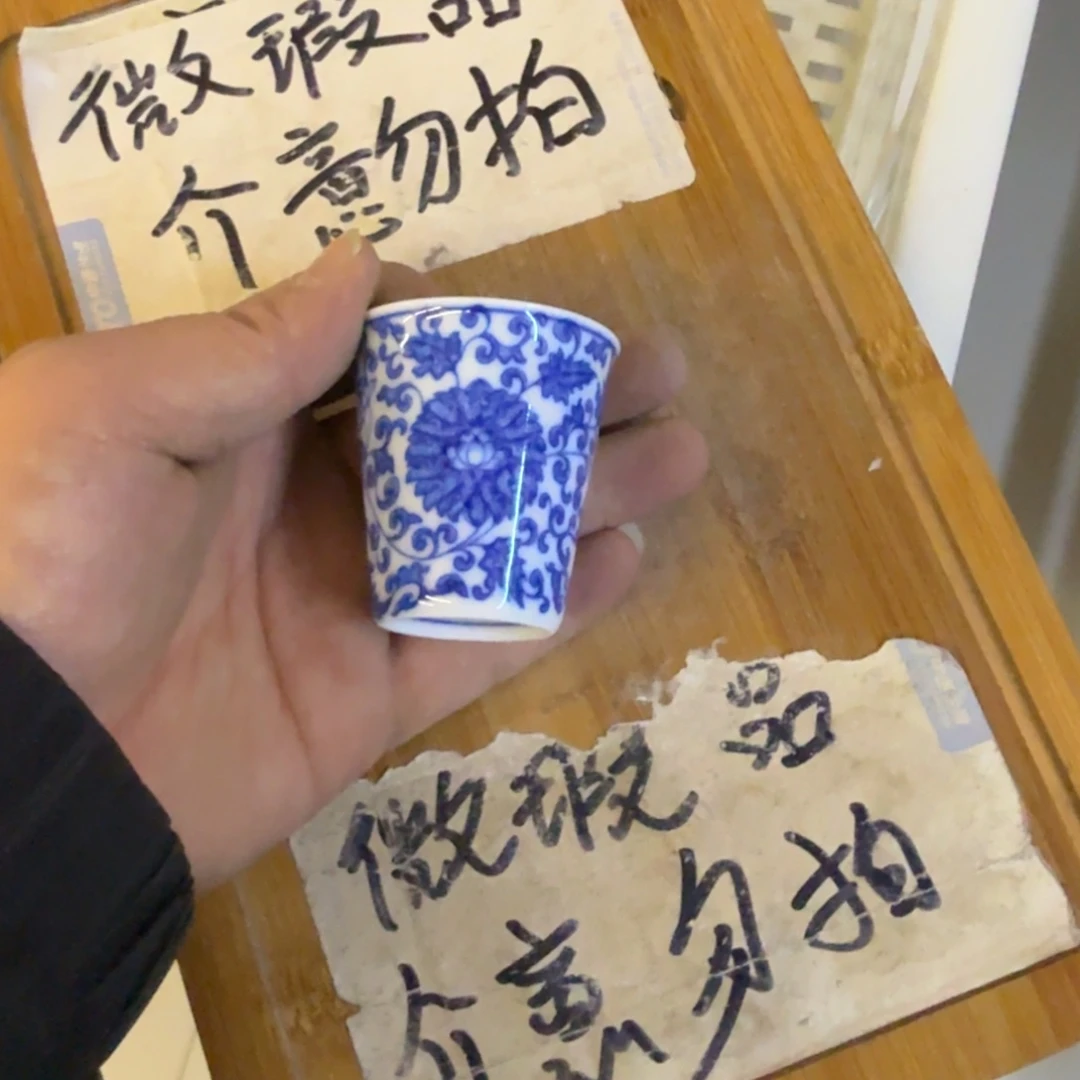 微瑕品
介意勿拍
微瑕品
介意勿拍